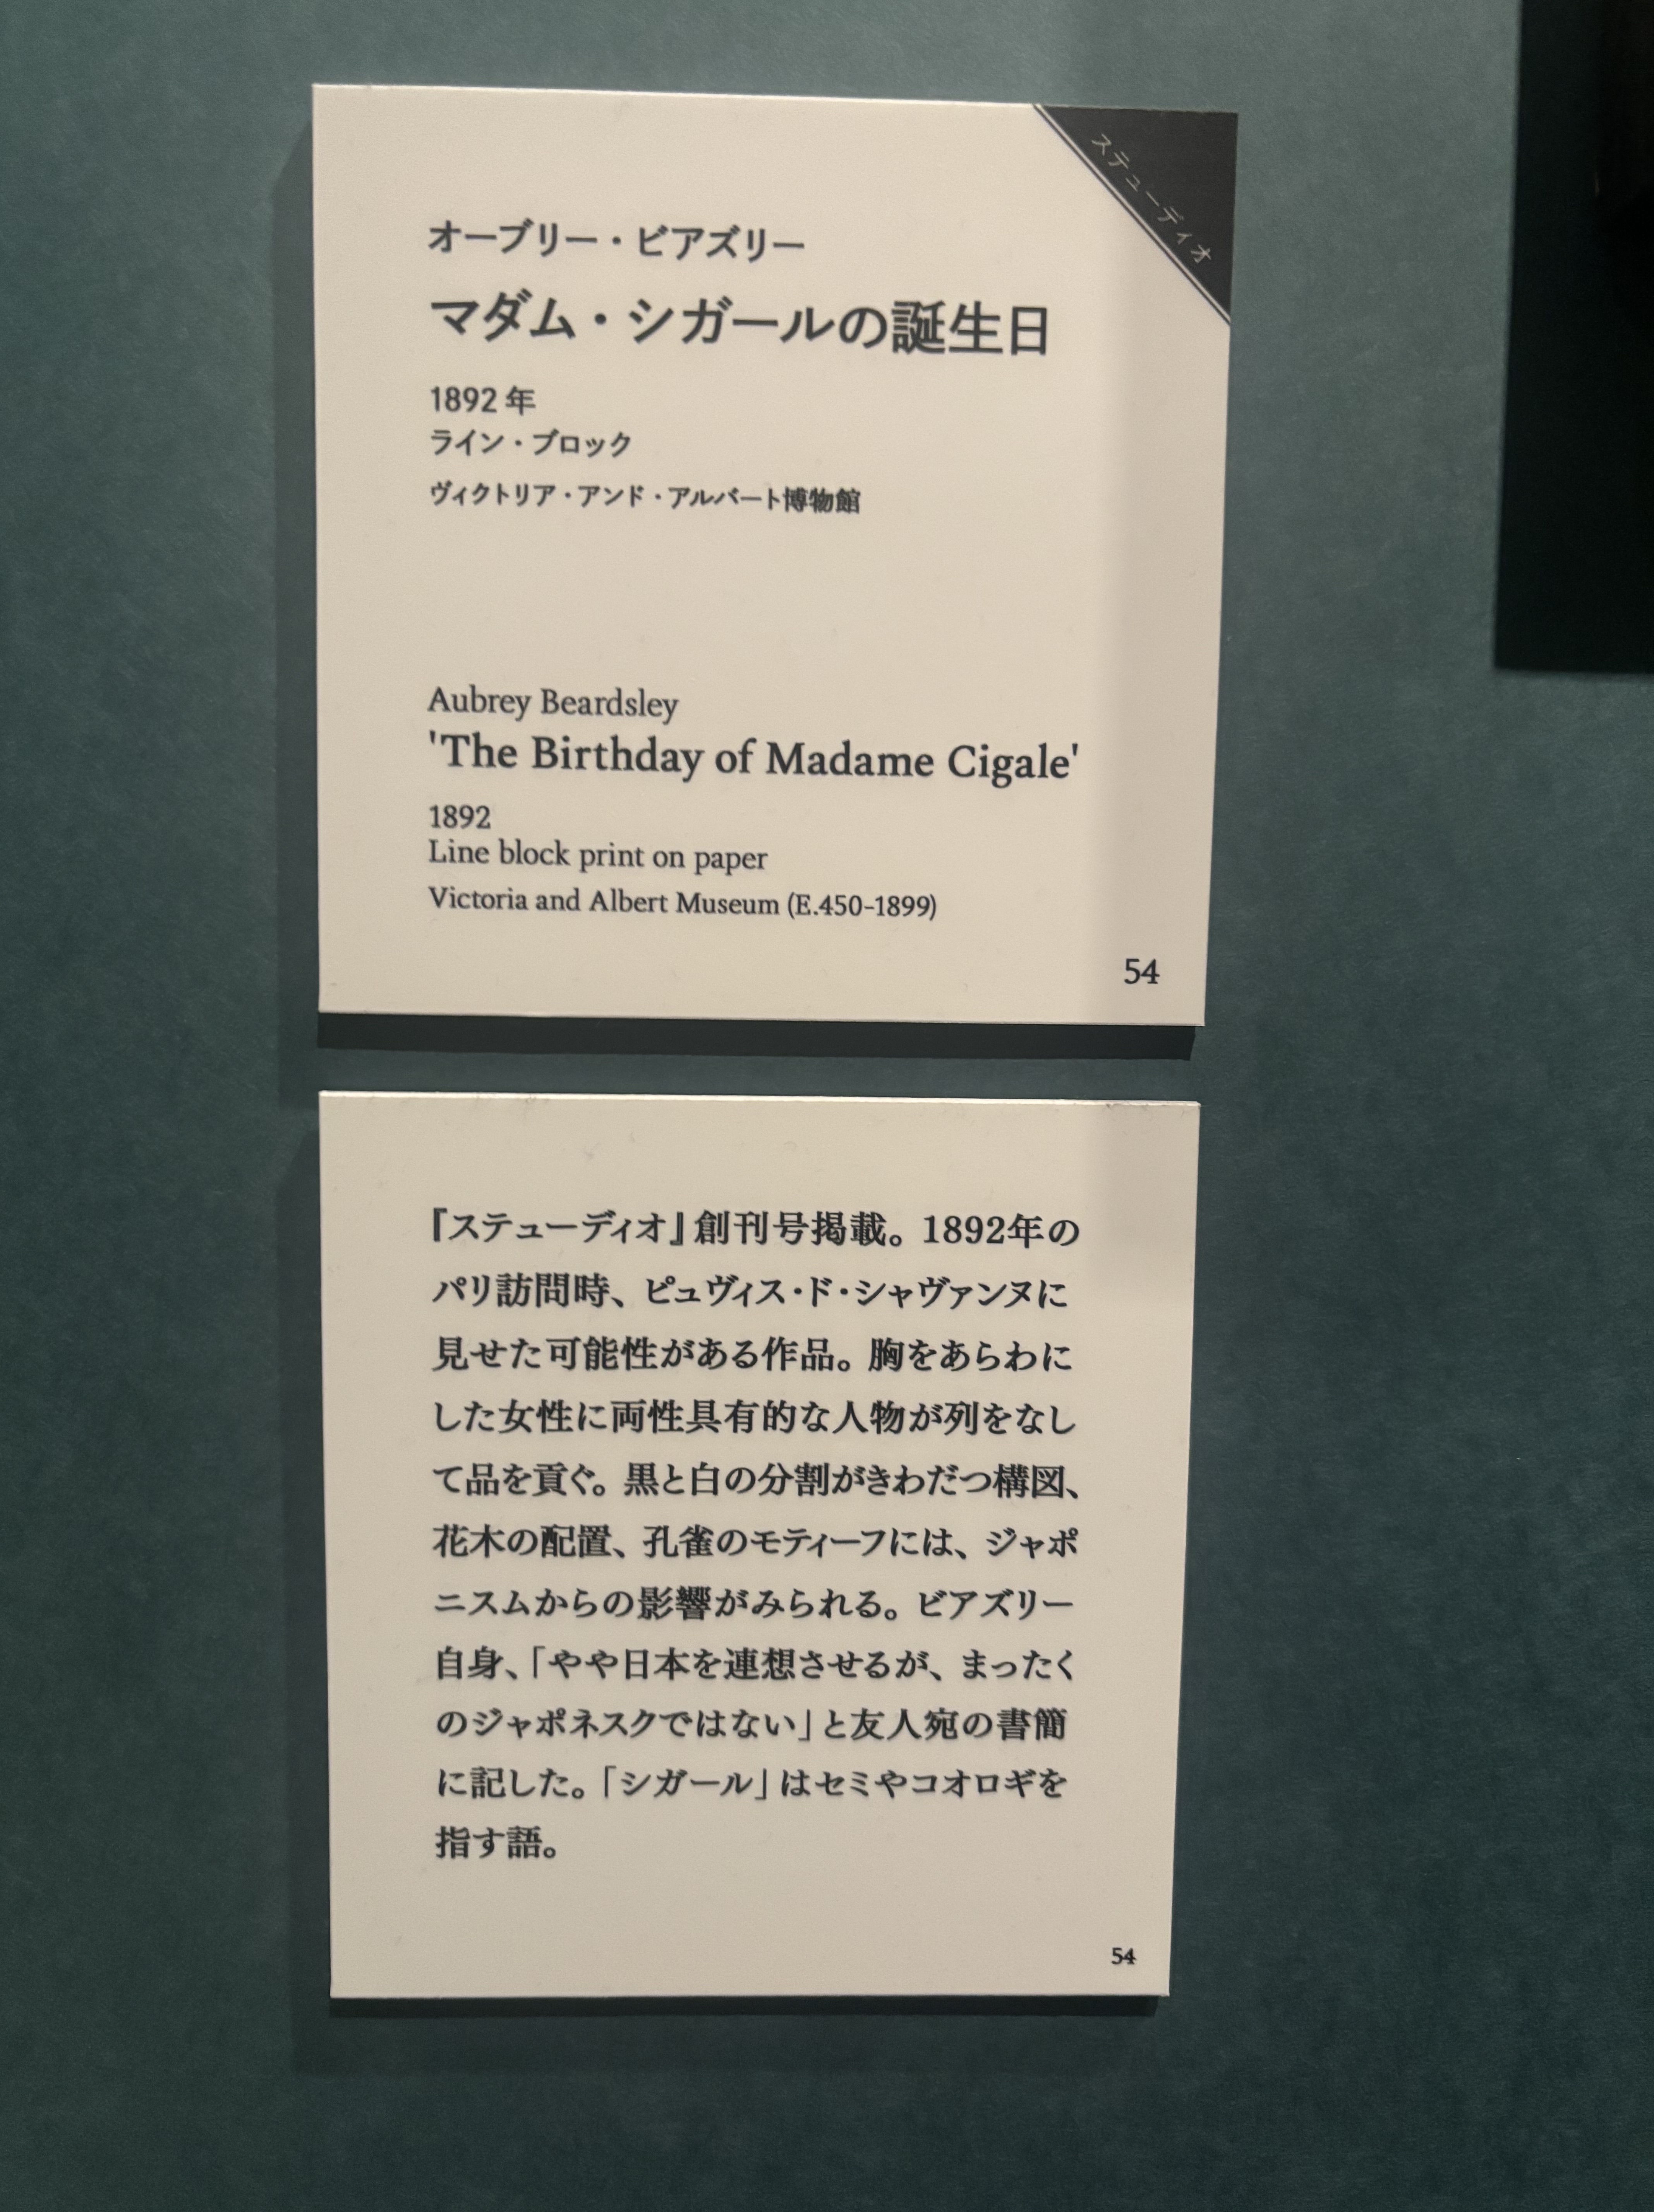 ステューディオ
オーブリー・ビアズリー
マダム・シガールの誕生日
1892 年
ライン・ブロック
ヴィクトリア・アンド・アルバート博物館
Aubrey Beardsley
'The Birthday of Madame Cigale'
1892
Line block print on paper
Victoria and Albert Museum (E.450-1899)
54
『ステューディオ』創刊号掲載。1892年の
パリ訪問時、ピュヴィス・ド・シャヴァンヌに
見せた可能性がある作品。胸をあらわに
した女性に両性具有的な人物が列をなし
て品を貢ぐ。黒と白の分割がきわだつ構図、
花木の配置、孔雀のモティーフには、ジャポ
ニスムからの影響がみられる。ビアズリー
自身、「やや日本を連想させるが、まったく
のジャポネスクではない」と友人宛の書簡
に記した。「シガール」はセミやコオロギを
指す語。
54